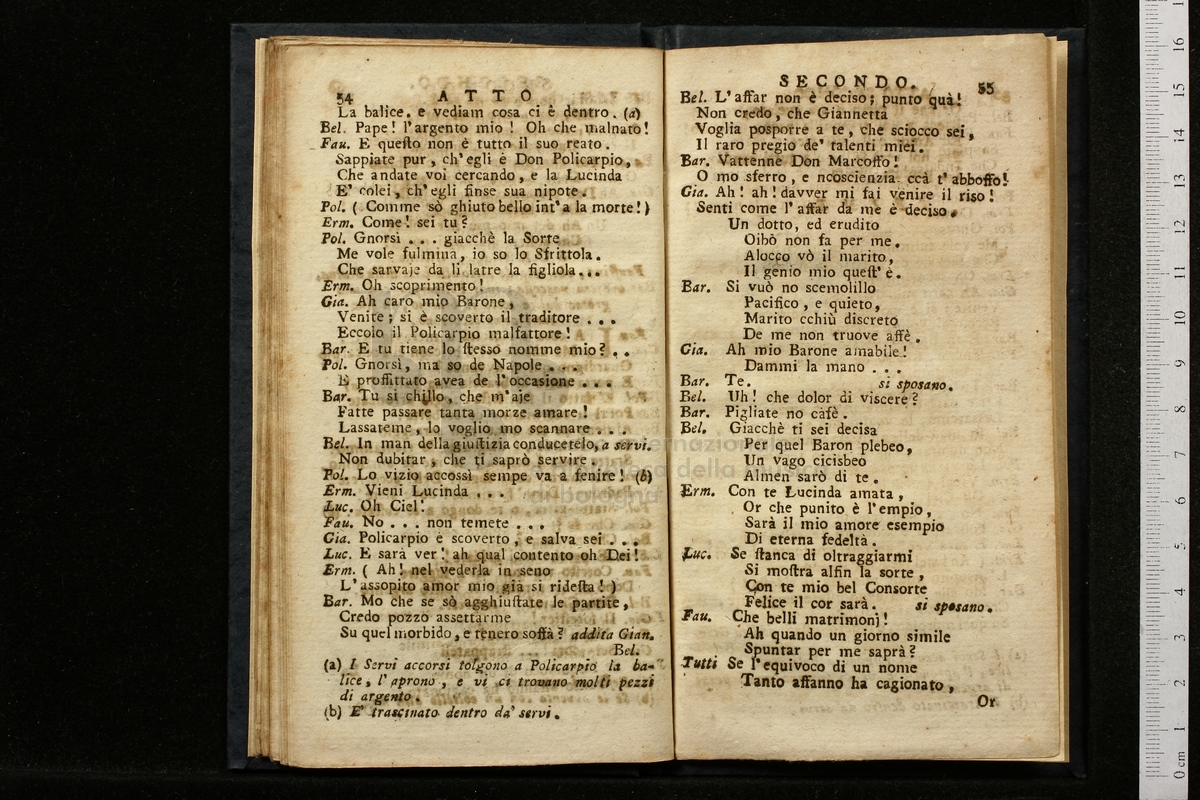 54 ATTO
La balice. e vediam cosa ci è dentro. (a)
Bel. Pape! l'argento mio! Oh che malnato!
Fau. E queſto non è tutto il suo reato.
Sappiate pur, ch'egli è Don Policarpio,
Che andate voi cercando, e la Lucinda
E' colei, ch'egli finse sua nipote.
Pol. ( Comme sò ghiuto bello int'a la morte!)
Erm. Come! sei tu?
Pol. Gnorsì ... giacchè la Sorte
Me vole fulmina, io so lo Sfrittola.
Che sarvaje da li latre la figliola...
Erm. Oh scoprimento!
Gia. Ah caro mio Barone,
Venite; si è scoverto il traditore ...
Eccolo il Policarpio malfattore!
Bar. E tu tiene lo ſtesso nomme mio? ..
Pol. Gnorsì, ma so de Napole ...
E proffittato avea de l'occasione ...
Bar. Tu si chillo, che m'aje
Fatte passare tanta morze amare!
Lassateme, lo voglio mo scannare ...
Bel. In man della giuſtizia conducetelo, a servi.
Non dubitar, che ti saprò servire.
Pol. Lo vizio accossì sempe va a fenire! (b)
Erm. Vieni Lucinda ...
Luc. Oh Ciel!
Fau. No ... non temete ...
Gia. Policarpio è scoverto, e salva sei ...
Luc. E sarà ver! ah qual contento oh Dei!
Erm. ( Ah! nel vederla in seno
L'assopito amor mio già si rideſta! )
Bar. Mo che se sò agghiuſtate le partite,
Credo pozzo assettarme
Su quel morbido, e tenero soffà? addita Gian.
Bel.
(a) I Servi accorsi tolgono a Policarpio la ba-
lice, l'aprono, e vi ci trovano molti pezzi
di argento.
(b) E' trascinato dentro da' servi.
SECONDO. 55
Bel. L'affar non è deciso; punto quà!
Non credo, che Giannetta
Voglia posporre a te, che sciocco sei,
Il raro pregio de' talenti miei.
Bar. Vattenne Don Marcoffo!
O mo sferro, e ncoscienzia ccà t'abboffo!
Gia. Ah! ah! davver mi fai venire il riso!
Senti come l'affar da me è deciso.
Un dotto, ed erudito
Oibò non fa per me.
Alocco vò il marito,
Il genio mio queſt'è.
Bar. Si vuò no scemolillo
Pacifico, e quieto,
Marito cchiù discreto
De me non truove affè.
Gia. Ah mio Barone amabile!
Dammi la mano ...
Bar. Te. si sposano.
Bel. Uh! che dolor di viscere?
Bar. Pigliate no cafè.
Bel. Giacchè ti sei decisa
Per quel Baron plebeo,
Un vago cicisbeo
Almen sarò di te.
Erm. Con te Lucinda amata,
Or che punito è l'empio,
Sarà il mio amore esempio
Di eterna fedeltà.
Luc. Se ſtanca di oltraggiarmi
Si moſtra alfin la sorte,
Con te mio bel Consorte
Felice il cor sarà. si sposano.
Fau. Che belli matrimonj!
Ah quando un giorno simile
Spuntar per me saprà?
Tutti Se l'equivoco di un nome
Tanto affanno ha cagionato,
Or